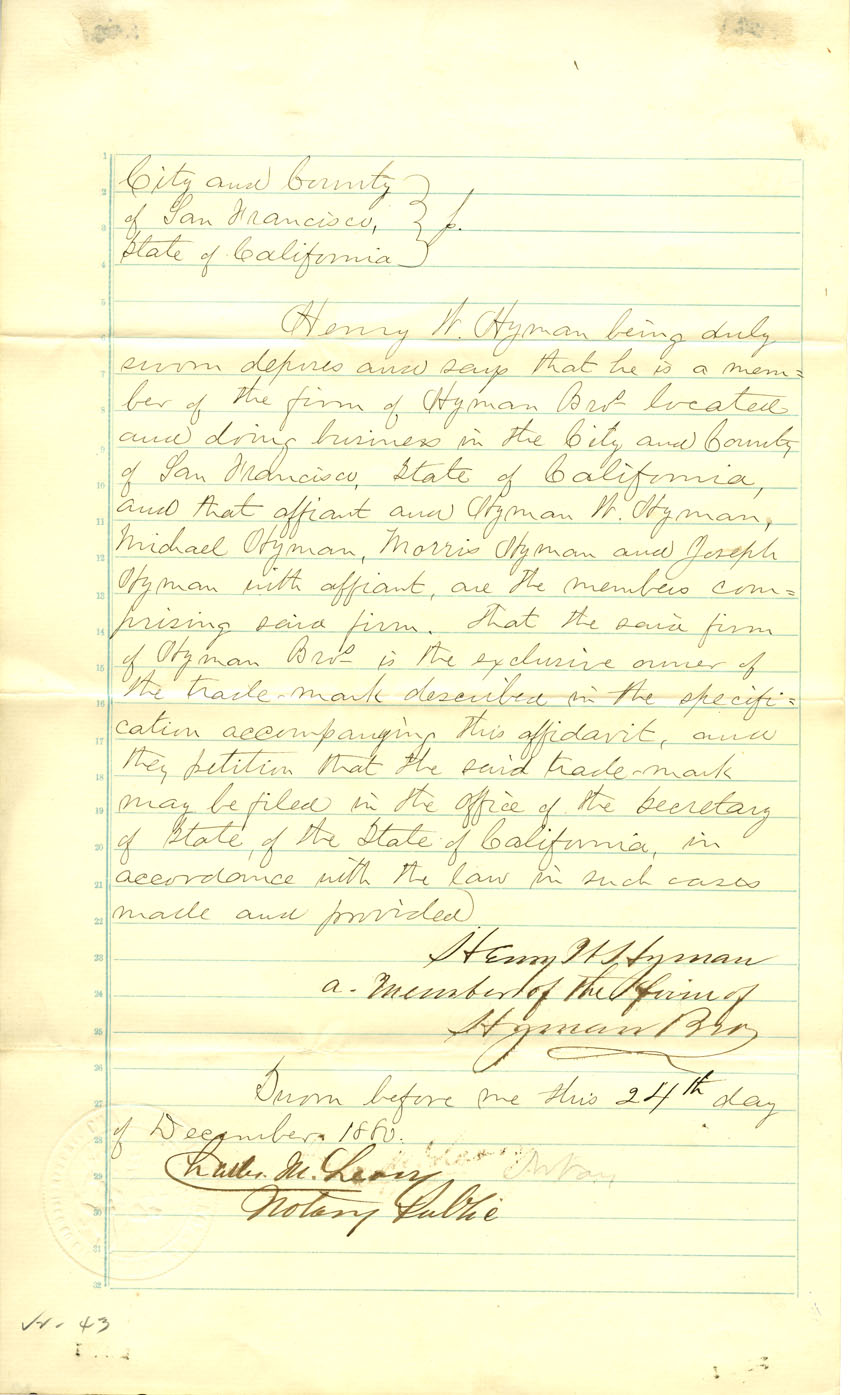 City and County
of San Francisco, } ss.
State of California
Henry W. Hyman being duly
sworn deposes and says that he is a mem=
ber of the firm of Hyman Bros located
and doing business in the City and County
of San Francisco, State of California,
and that affiant and Hyman W. Hyman,
Michael Hyman, Morris Hyman and Joseph
Hyman with affiant, are the members com=
prising said firm. That the said firm
of Hyman Bros is the exclusive owner of
the trade-mark described in the specifi=
cation accompanying this affidavit, and
they petition that the said trade-mark
may be filed in the office of the Secretary
of State, of the State of California, in
accordance with the law in such cases
made and provided
Henry W Hyman
a. Member of the firm of
Hyman Bros
Sworn before me this 24th day
of December 1880.
M. Leary
Notary Public
43
1
2
3
4
5
6
7
8
9
10
11
12
13
14
15
16
17
18
19
20
21
22
23
24
25
26
27
28
29
30
31
32